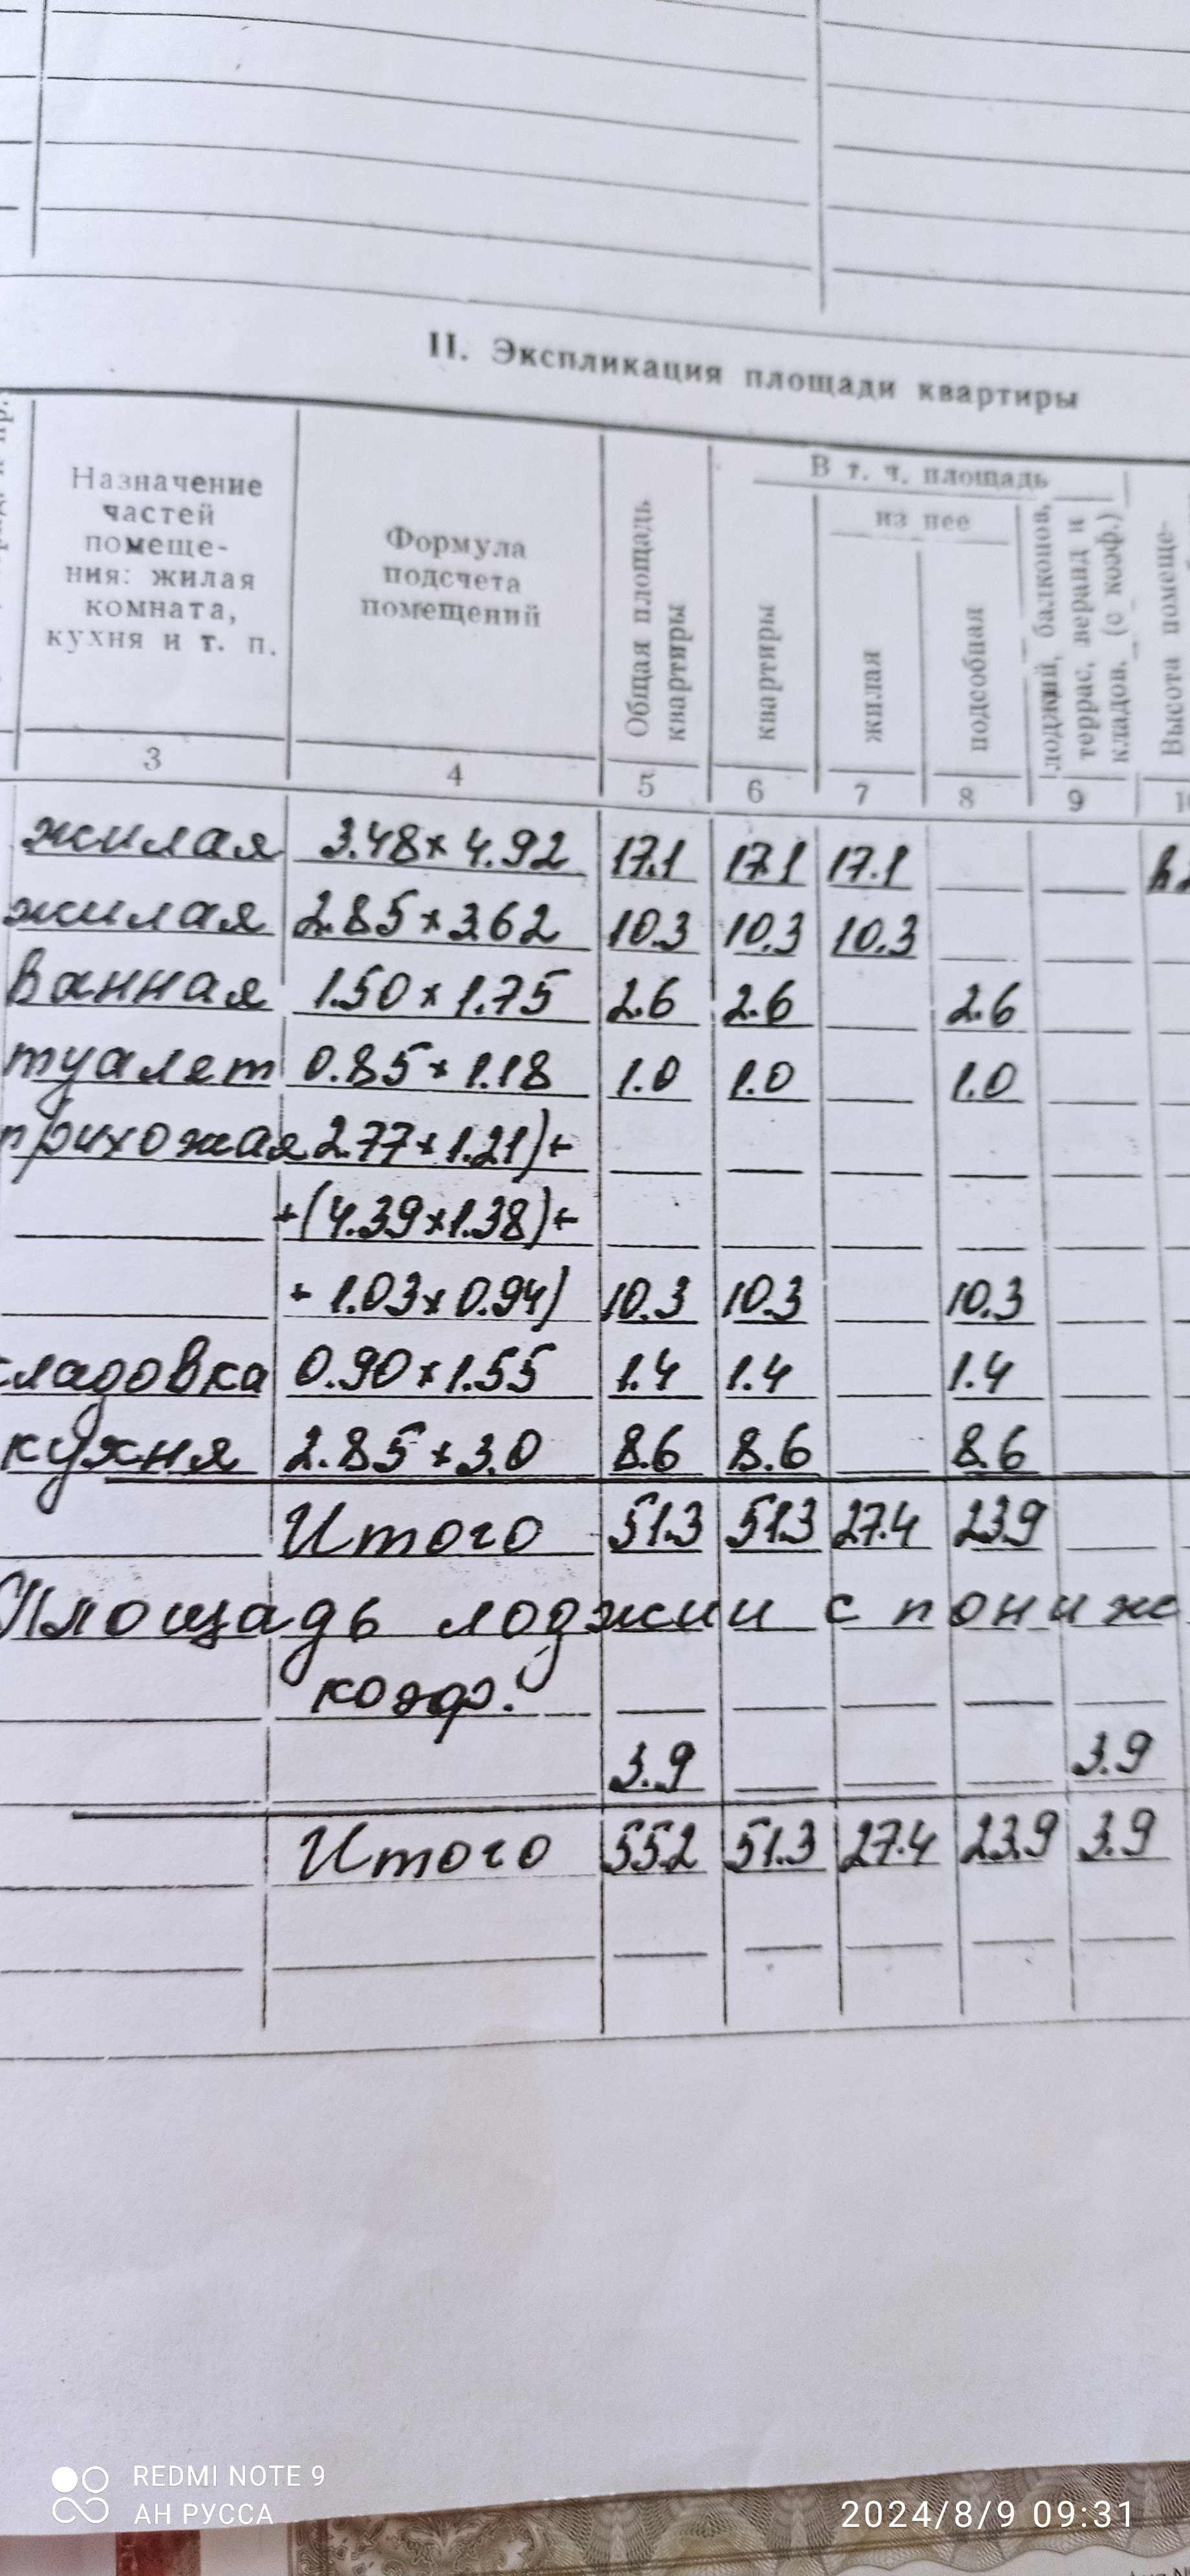 II. Экспликация площади квартиры
Назначение
частей
помеще-
ния: жилая
комната,
кухня и т. п.
Формула
подсчета
помещений
Общая площадь
квартиры
В т. ч. площадь
квартиры
из нее
жилая
подсобная
лоджий, балконов,
террас, веранд и
кладов. (с коэф.)
Высота помеще-
3 4 5 6 7 8 9
жилая 3.48×4.92 17.1 17.1 17.1
жилая 2.85×3.62 10.3 10.3 10.3
ванная 1.50×1.75 2.6 2.6 2.6
туалет 0.85×1.18 1.0 1.0 1.0
прихожая 2.77×1.21)+
+(4.39×1.38)+
+1.03×0.94) 10.3 10.3 10.3
кладовка 0.90×1.55 1.4 1.4 1.4
кухня 2.85×3.0 8.6 8.6 8.6
Итого 51.3 51.3 27.4 23.9
Площадь лоджии с пониж
коэф.
3.9 3.9
Итого 55.2 51.3 27.4 23.9 3.9
REDMI NOTE 9
АН РУССА
2024/8/9 09:31